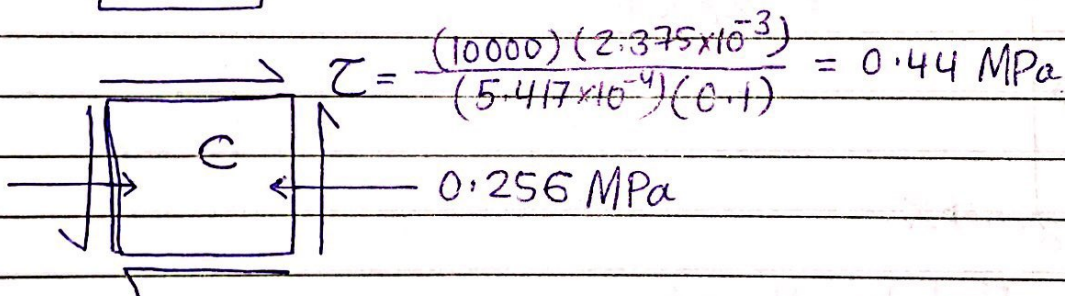 τ = (10000)(2.375×10⁻³) / (5.417×10⁻⁴)(0.1) = 0.44 MPa
C
0.256 MPa